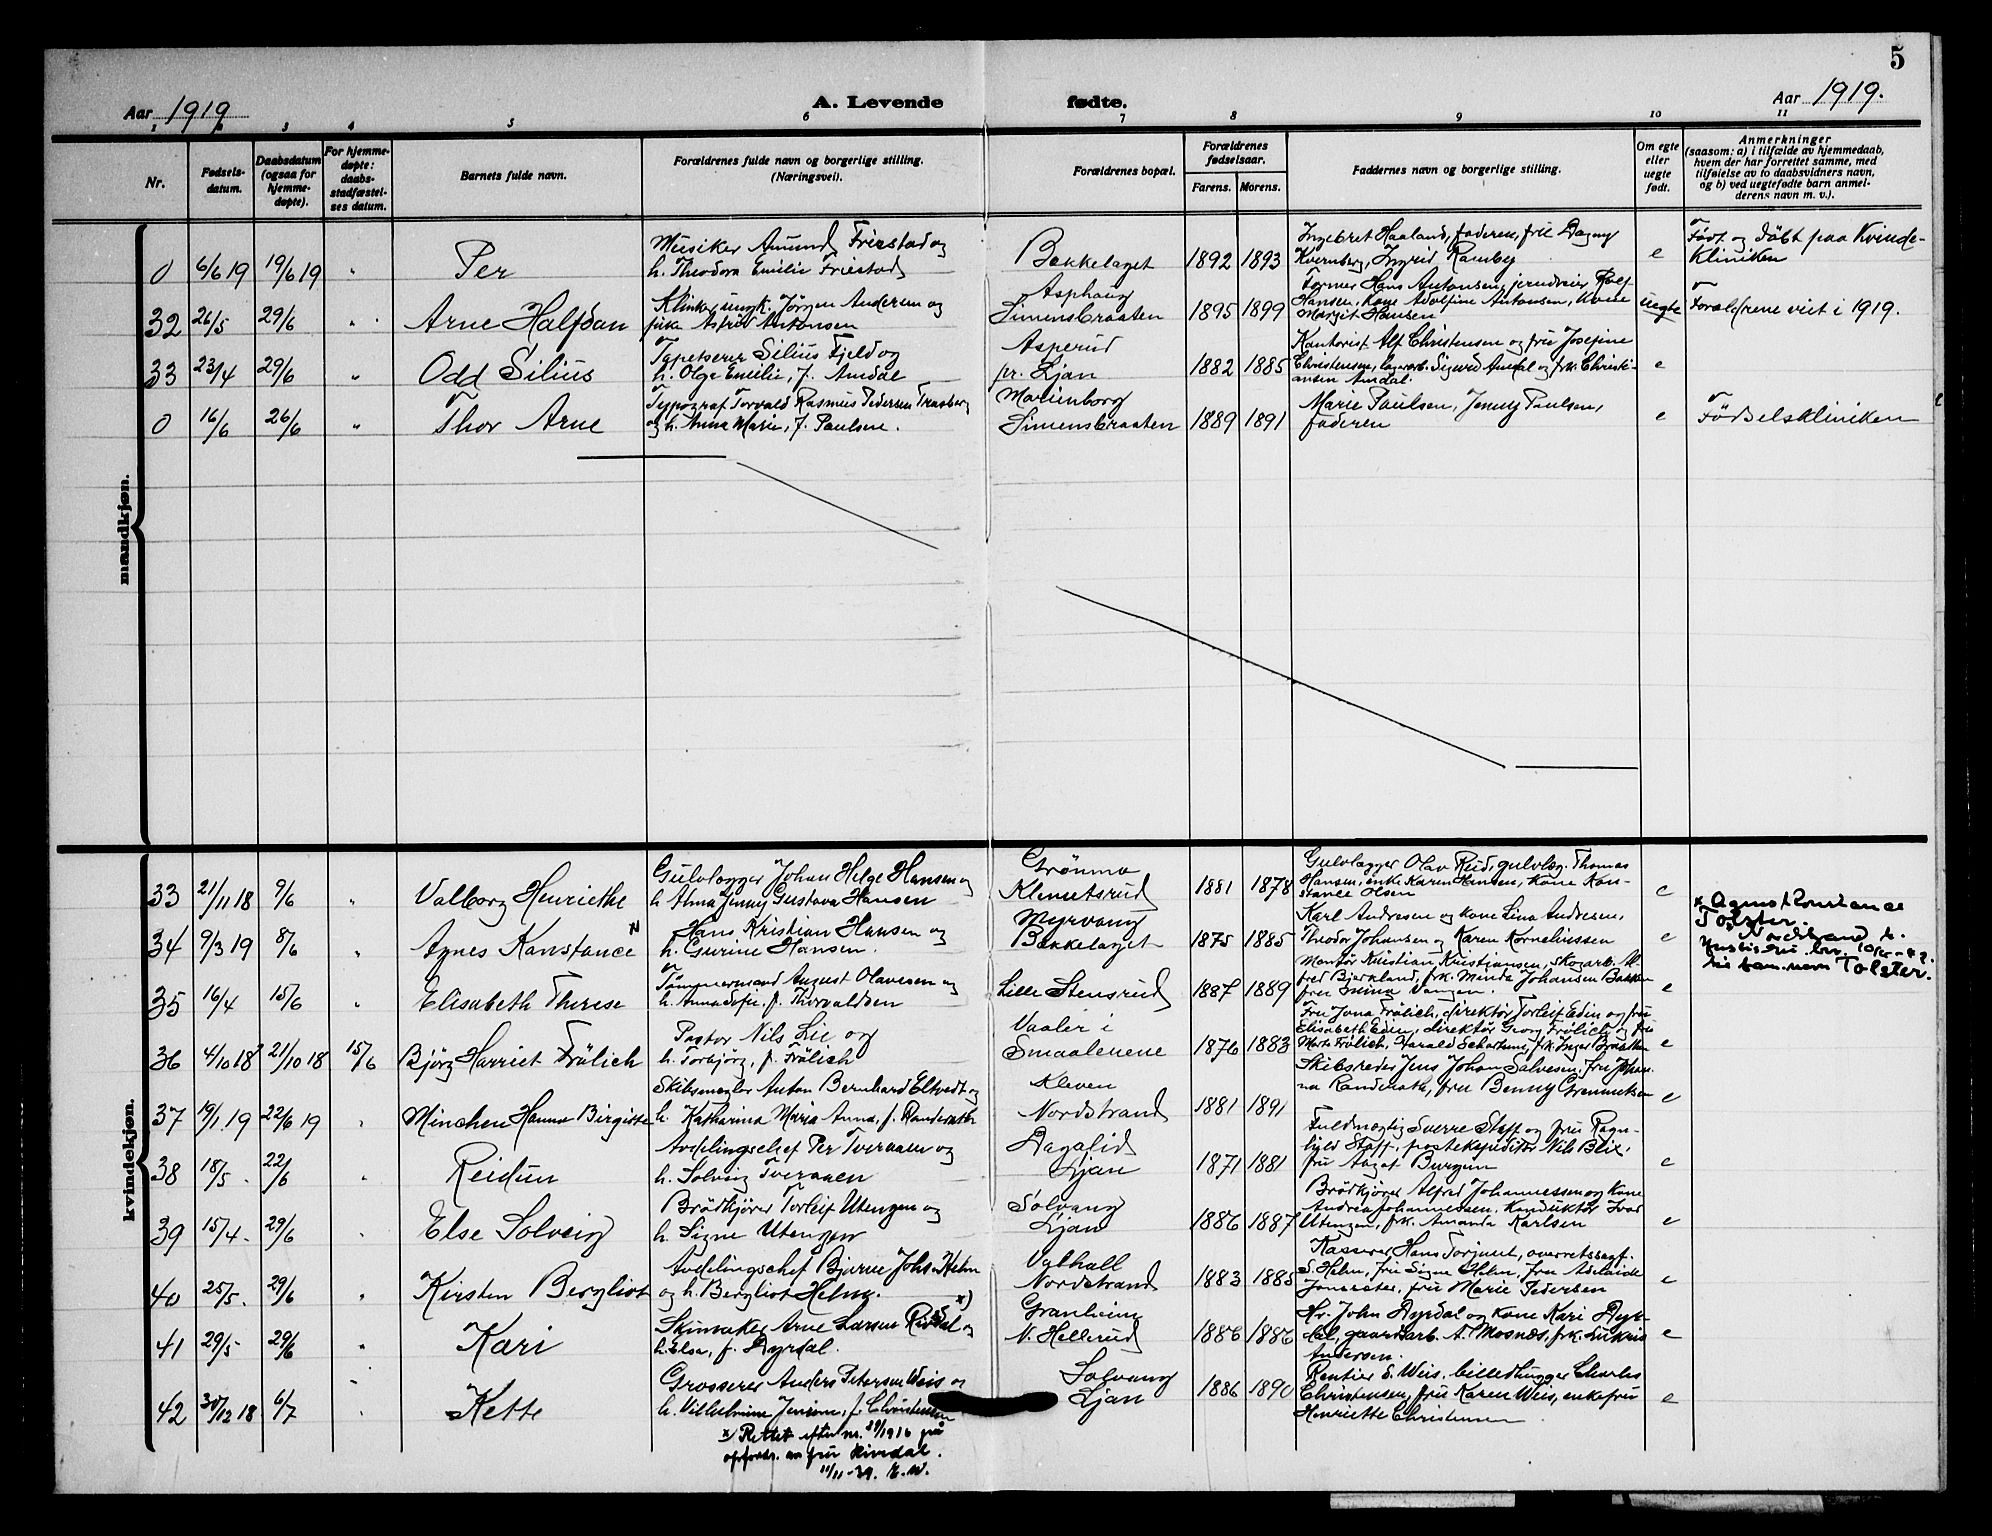 5
Aar 1919
A. Levende
fødte.
Aar 1919.
1 2 3 4 5 6 7 8 9 10 11
Nr.
Fødsels-
datum.
Daabsdatum
(ogsaa for
hjemme-
døpte).
For hjemme-
døpte:
daabs-
stadfæstel-
ses datum.
Barnets fulde navn.
Forældrenes fulde navn og borgerlige stilling.
(Næringsvei).
Forældrenes bopæl.
Forældrenes
fødselsaar.
Farens. Morens.
Faddernes navn og borgerlige stilling.
Om egte
eller
uegte
født.
Anmerkninger
(saasom: a) i tilfælde av hjemmedaab,
hvem der har forrettet samme, med
tilføielse av to daabsvidners navn,
og b) ved uegtefødte barn anmel-
derens navn m. v.).
mandkjøn.
0 6/6 19 19/6 19 " Per
Musiker Amund Friestad og
h. Theodora Emilie Friestad
Bækkelaget 1892 1893
Ingebret Haaland, faderen, fru Dagny
Kvernberg, Ingrid Ramby
e
Født og døbt paa Kvinde-
kliniken
32 26/5 29/6 " Arne Halfdan
Jørgen Andersen og
Astrid Antonsen
Asphaug
Simensbraaten 1895 1899
Former Hans Antonsen, Rolf
Hansen, kone Adolfine Antonsen, kone
Margit Hansen
uegte
Forældrene viet i 1919.
33 23/4 29/6 " Odd Silius
Tapetserer Silius Fjeld og
h. Olga Emilie, f. Amdal
Asperud
pr. Ljan 1882 1885
Kontorist Alf Christensen og fru Josefine
Christensen, lagerarb. Sigurd Amdal og frk. Christi-
anea Amdal.
e
0 16/6 26/6 " Thor Arne
Typograf Torvald Rasmus Pedersen
og h. Anna Marie, f. Paulsen.
Marienborg
Simensbraaten 1889 1891
Marie Paulsen, Jenny Paulsen,
faderen
e
Fødselskliniken
kvindekjøn.
33 21/11 18 9/6 " Valborg Henriethe
Gulvlægger Johan Helge Hansen og
h. Alma Jenny Gustava Hansen
Strømmo
Klemetsrud 1881 1878
Gulvlægger Olav Rud, gulvlæg. Thomas
Hansen, enke Karen Hansen, kone Kon-
stance Olsen
e
34 9/3 19 8/6 " Agnes Konstance x
Hans Kristian Hansen og
h. Gurine Hansen.
Myrvang
Bækkelaget 1875 1885
Karl Andresen og kone Lina Andresen,
Theodor Johansen og Karen Korneliussen
e
x Agnes Konstance
Tolster.
Nordstrand
Tolster.
35 16/4 15/6 " Elisabeth Therese
Tømmermand August Olavesen og
h. Anna Sofie, f. Thorvaldsen
Lille Stensrud 1887 1889
Montør Kristian Kristiansen, skogarb. Al-
fred Bjørnland, frk. Minda Johansen Bakken
fru Vangen.
e
36 4/10 18 21/10 18 15/6 Bjørg Harriet Frölich
Pastor Nils Lie og
h. Torbjørg, f. Frölich
Vaaler i
Smaalenene 1876 1883
Fru Jona Frölich, direktør Torleif Edin og fru
Elisabeth Edin, direktør Georg Frölich og fru
Marta Frölich, Harald Schartum, frk. Inger
e
37 19/1 19 22/6 19 " Minchen Hanna Birgitte
Skibsmægler Anton Bernhard Eltvedt og
h. Katharina Maria Anna, f. Randerath
Kleven
Nordstrand 1881 1891
Skibsreder Jens Johan Salvesen, fru Johan-
na Randerath, fru Benny
e
38 18/5 22/6 " Reidun
Avdelingschef Per Tveraaen og
h. Solveig Tveraaen
Dagafid
Ljan 1871 1881
Fuldmægtig Sverre Staff og fru Ragn-
hild Staff, postekspeditør Nils Blix,
fru Aagot Burgun
e
39 15/4 29/6 " Else Solveig
Brödkjører Torleif Utengen og
h. Signe Utengen
Solvang
Ljan 1886 1887
Brödkjører Alfred Johannessen og kone
Andrea Johannessen, konduktør Ivar
Utengen, frk. Amanda Karlsen
e
40 25/5 29/6 " Kirsten Bergliot
Avdelingschef Bjarne Johs. Helm
og h. Bergliot Helm.
Valhall
Nordstrand 1883 1885
Kasserer Hans Torjusen, overretssagf.
S. Helm, fru Signe Helm, fru Adelaide
fru Marie Pedersen
e
41 29/5 29/6 " Kari
Skomaker Arne Larsen x)
h. Elsa, f. Dyrdal.
Granheim
N. Hellerud 1886 1886
Hr. John Dyrdal og kone Kari Dyr-
dal, gaardsarb. A. Mosnæs, frk.
Andersen.
e
42 30/12 18 6/7 " Kette
Grosserer Anders Peterson Weis og
h. Vilhelmine f. Christensen
Solvang
Ljan 1886 1890
Rentier S. Weis, billedhugger Charles
Christensen, fru Karen Weis, enkefru
Henriette Christensen
e
x) Rettet efter nr. 89/1916 på
opfordr. av fru Rivedal.
11/11-39. E.W.